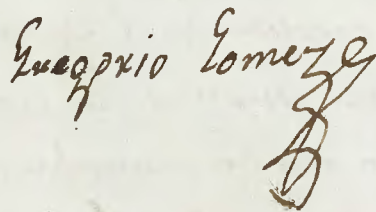 Gregorio Gomez